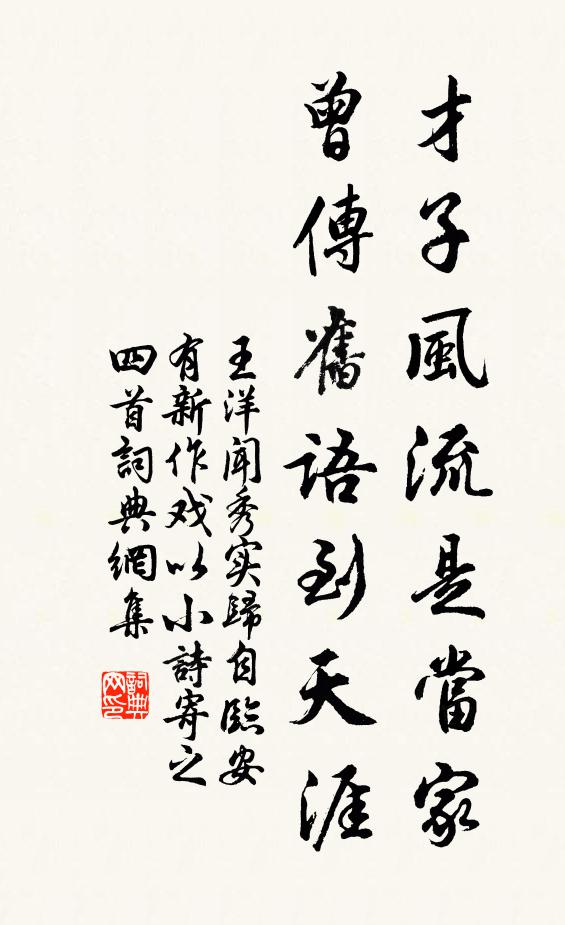 才子風流是當家
曾傳舊語到天涯
王洋聞秀实歸自臨安
有新作戏以小詩寄之
四首詞典網集
詞典网印